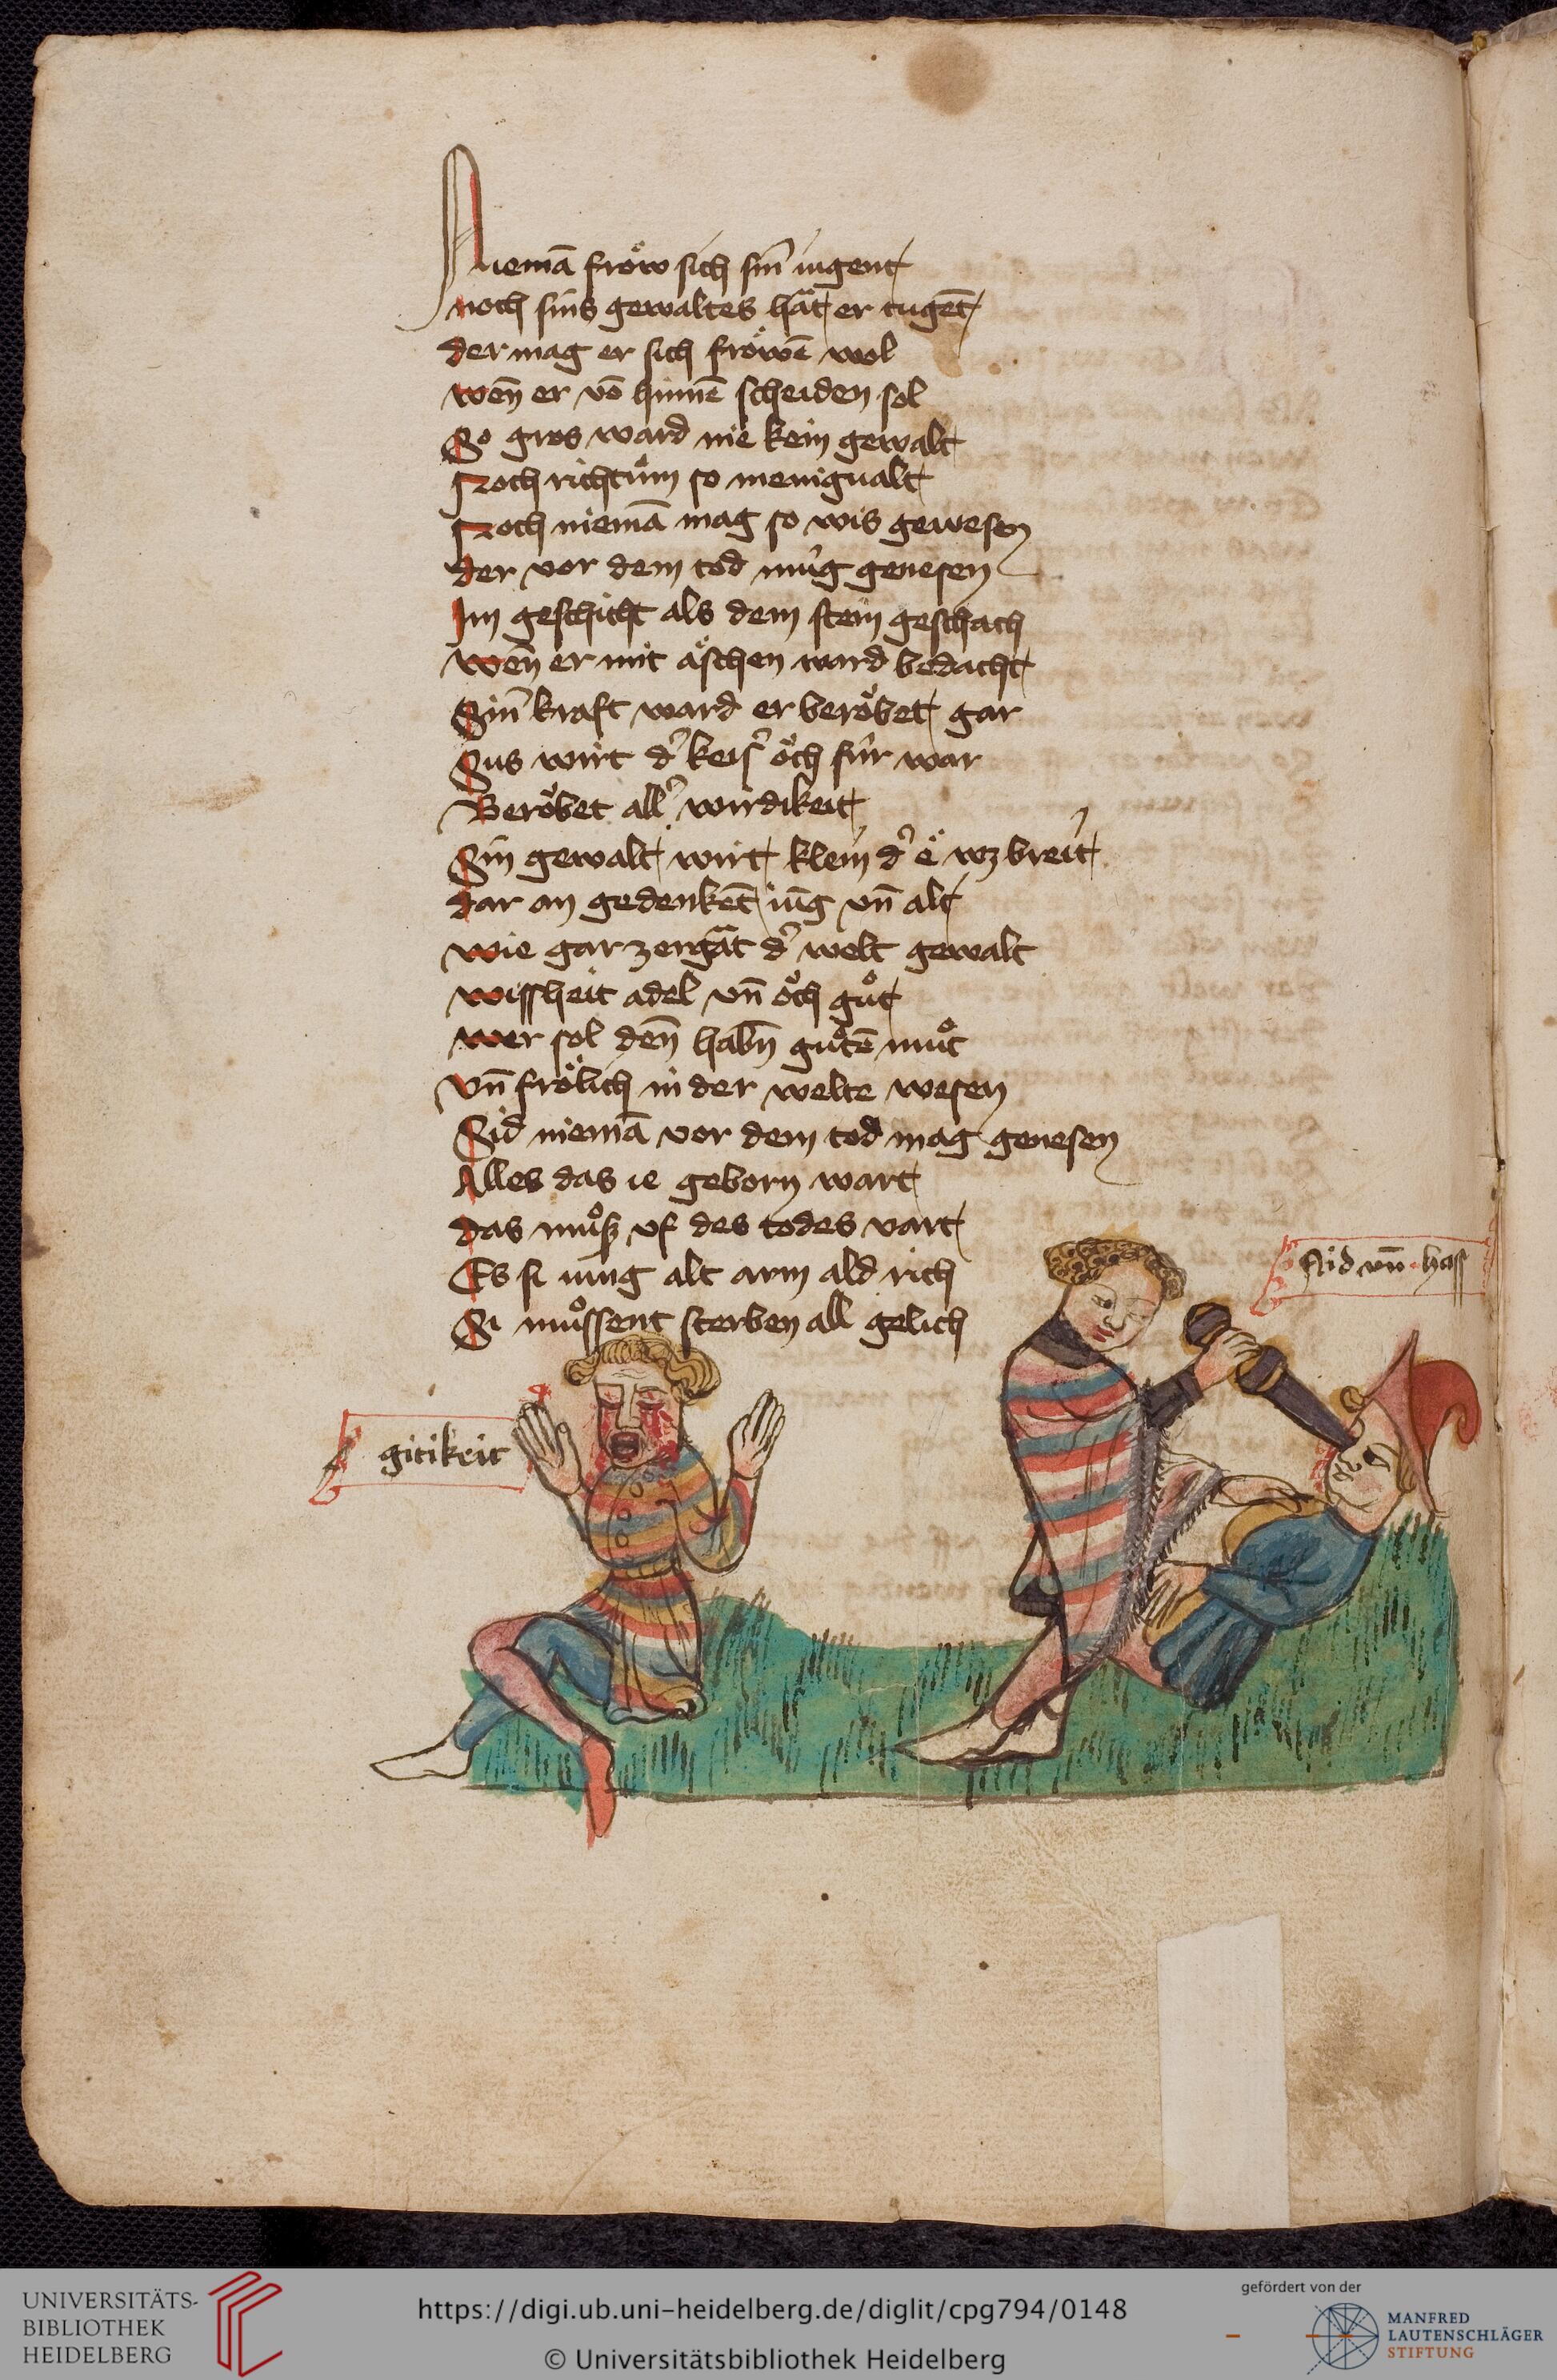 Niemā frow̌ sich sin̄ iugent
noch sins gewaltes hăt er tugēt
der mag er sich frow̌ē wol
wen̄ er vō hinnē scheiden sol
So gros ward nie kein gewalt
Noch richtům so menigualt
Noch niemā mag so wis gewesen
der vor dem tod mu̇g genesen
Im geschicht als dem stein geschach
wen̄ er mit äschen ward bedacht
Sin̄ kraft ward er beroͮbet gar
Sus wirt d' keis' oͮch fu̇r war
Beroͮbet all' wirdikeit
Sin gewalt wirt klein d' ë wz breit
dar an gedenkēt iūg vn̄ alt
wie gar zergăt d' welt gewalt
wissheit adel vn̄ oͮch gůt
wer sol den̄ habn̄ gůtē můt
vn̄ frölich in der welte wesen
Sid niemā vor dem tod mag genesen
Alles das ie geborn wart
das můß vf des todes vart
Es si iung alt arm ald rich
Si můssent sterben all gelich
Nid vn̄ hass
gitikeit
UNIVERSITÄTS-
BIBLIOTHEK
HEIDELBERG
https://digi.ub.uni-heidelberg.de/diglit/cpg794/0148
© Universitätsbibliothek Heidelberg
gefördert von der
MANFRED
LAUTENSCHLÄGER
STIFTUNG